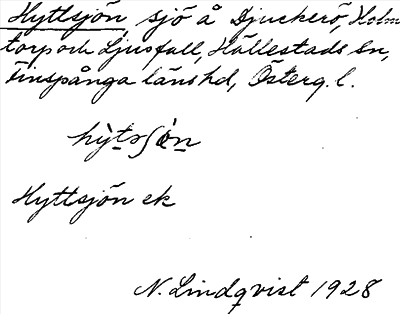 Hyttsjön, sjö å Djuckerö, Holm
torp och Ljusfall, Hällestads sn,
Finspånga länshd, Österg. l.
hỳtsʃön
Hyttsjön ek
N. Lindqvist 1928